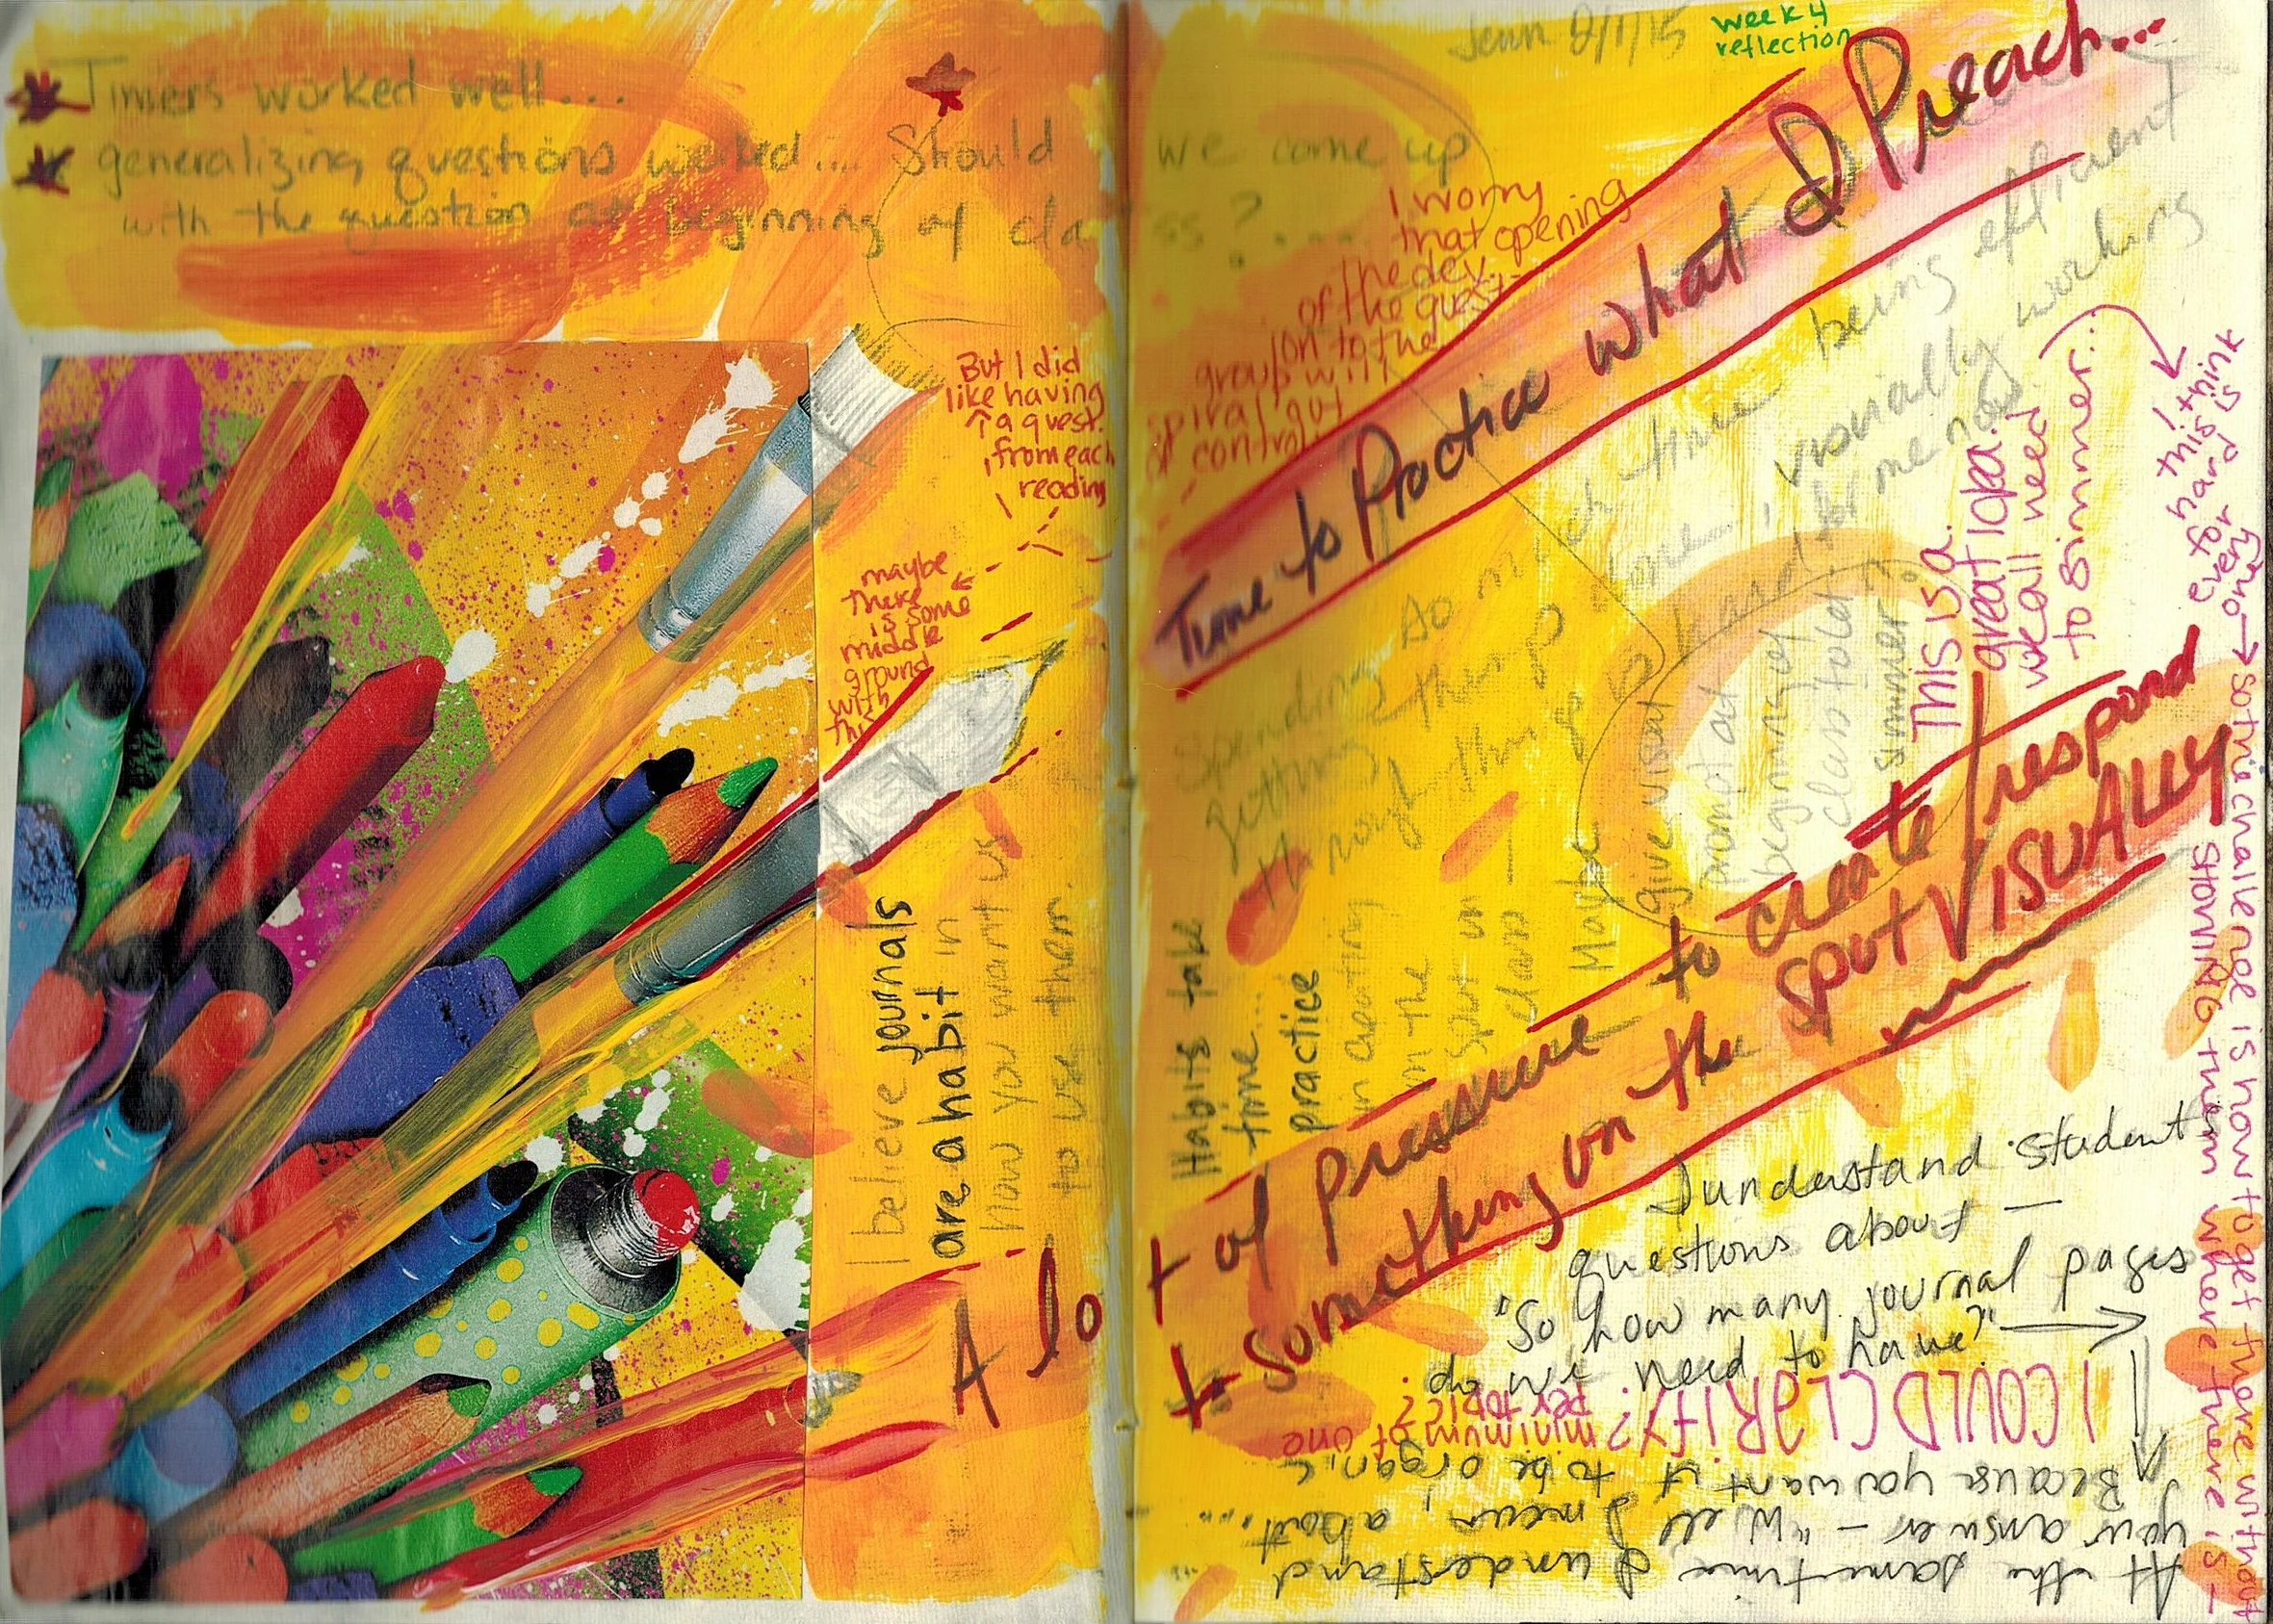 Timers worked well...
generalizing questions worked.... Should we come up
with the question at beginning of class?....
But I did
like having
a quest.
from each
reading
maybe
there
is some
middle
ground
with
this
I believe journals
are a habit in
how you want us
to use them.
Jenn 2/1/15
week 4
reflection
I worry
that opening
of the dev.
of the quest-
ion to the
group will
spiral out
of control
Time to Practice what I Preach...
Spending so much time being efficient
getting things done... visually working
through things is hard for me now
Habits take
time...
practice
in creating
on the
spot in
class —
Maybe
give visual
prompt at
beginning of
class told
simmer?
This is a
great idea.
we all need
to simmer...
I think
this is
hard
for
every
one → so the challenge is how to get there without
starving them where there is —
A lot of pressure to create/respond
to something on the spot VISUALLY
I understand students
questions about —
"So how many journal pages
do we need to have?"
I COULD CLARIFY?
minimum of one
per topic?
At the same time I understand
your answer – "Well I mean, about...
Because you want it to be organic